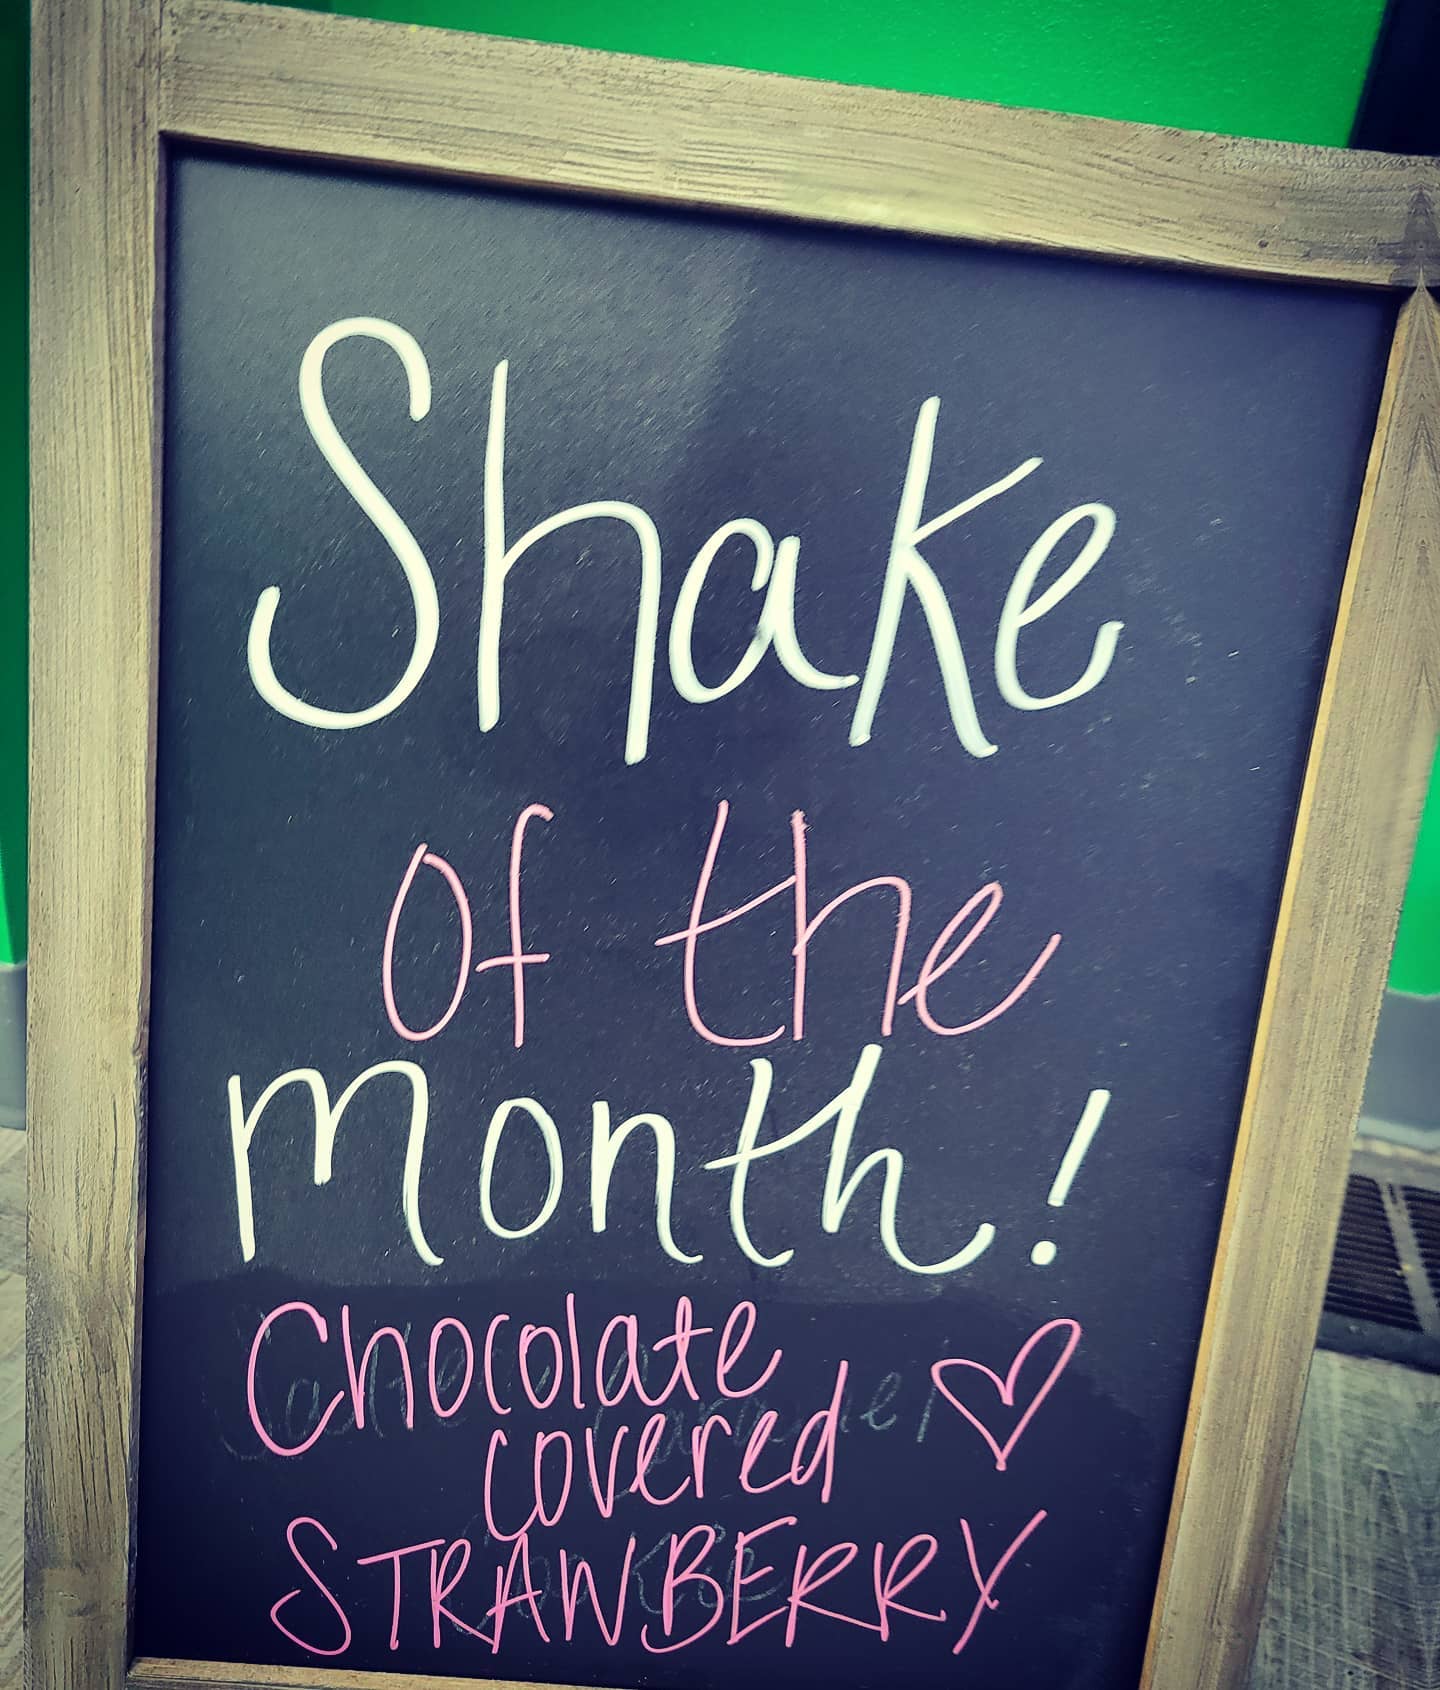 Shake
of the
Month!
Chocolate
covered
STRAWBERRY